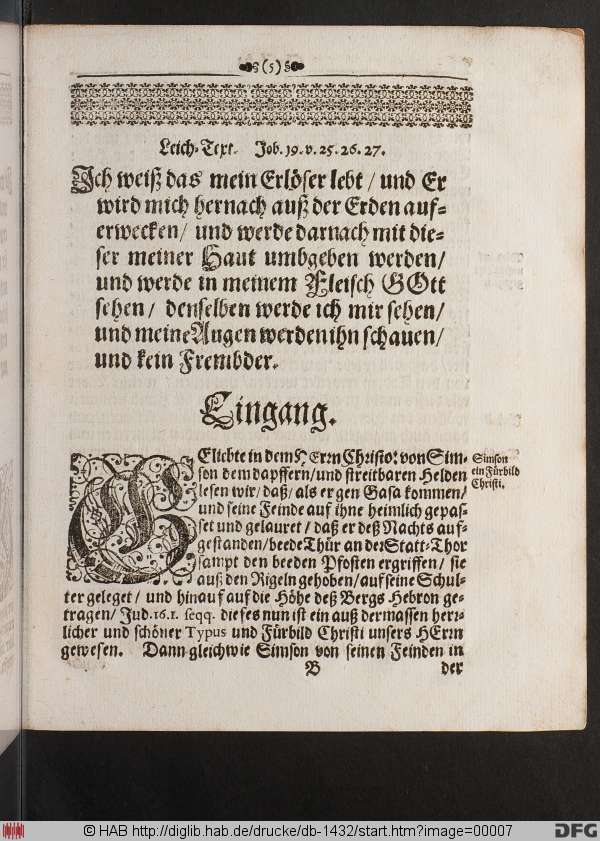 (5)
Leich-Text. Job. 19. v. 25. 26. 27.
Ich weiß das mein Erlöser lebt / und Er
wird mich hernach auß der Erden auf-
erwecken / und werde darnach mit die-
ser meiner Haut umbgeben werden /
und werde in meinem Fleisch GOtt
sehen / denselben werde ich mir sehen /
und meine Augen werden ihn schauen /
und kein Frembder.
Eingang.
GEliebte in dem HErrn Christo: von Sim-
son dem dapffern / und streitbaren Helden
lesen wir / daß / als er gen Gasa kommen /
und seine Feinde auf ihne heimlich gepas-
set und gelauret / daß er deß Nachts auf-
gestanden / beede Thür an der Statt-Thor
sampt den beeden Pfosten ergriffen / sie
auß den Rigeln gehoben / auf seine Schul-
ter geleget / und hinauf auf die Höhe deß Bergs Hebron ge-
tragen / Jud. 16. 1. seqq. dieses nun ist ein auß dermassen herr-
licher und schöner Typus und Fürbild Christi unsers HErrn
gewesen. Dann gleichwie Simson von seinen Feinden in
B der
Simson
ein Fürbild
Christi.
© HAB http://diglib.hab.de/drucke/db-1432/start.htm?image=00007
DFG